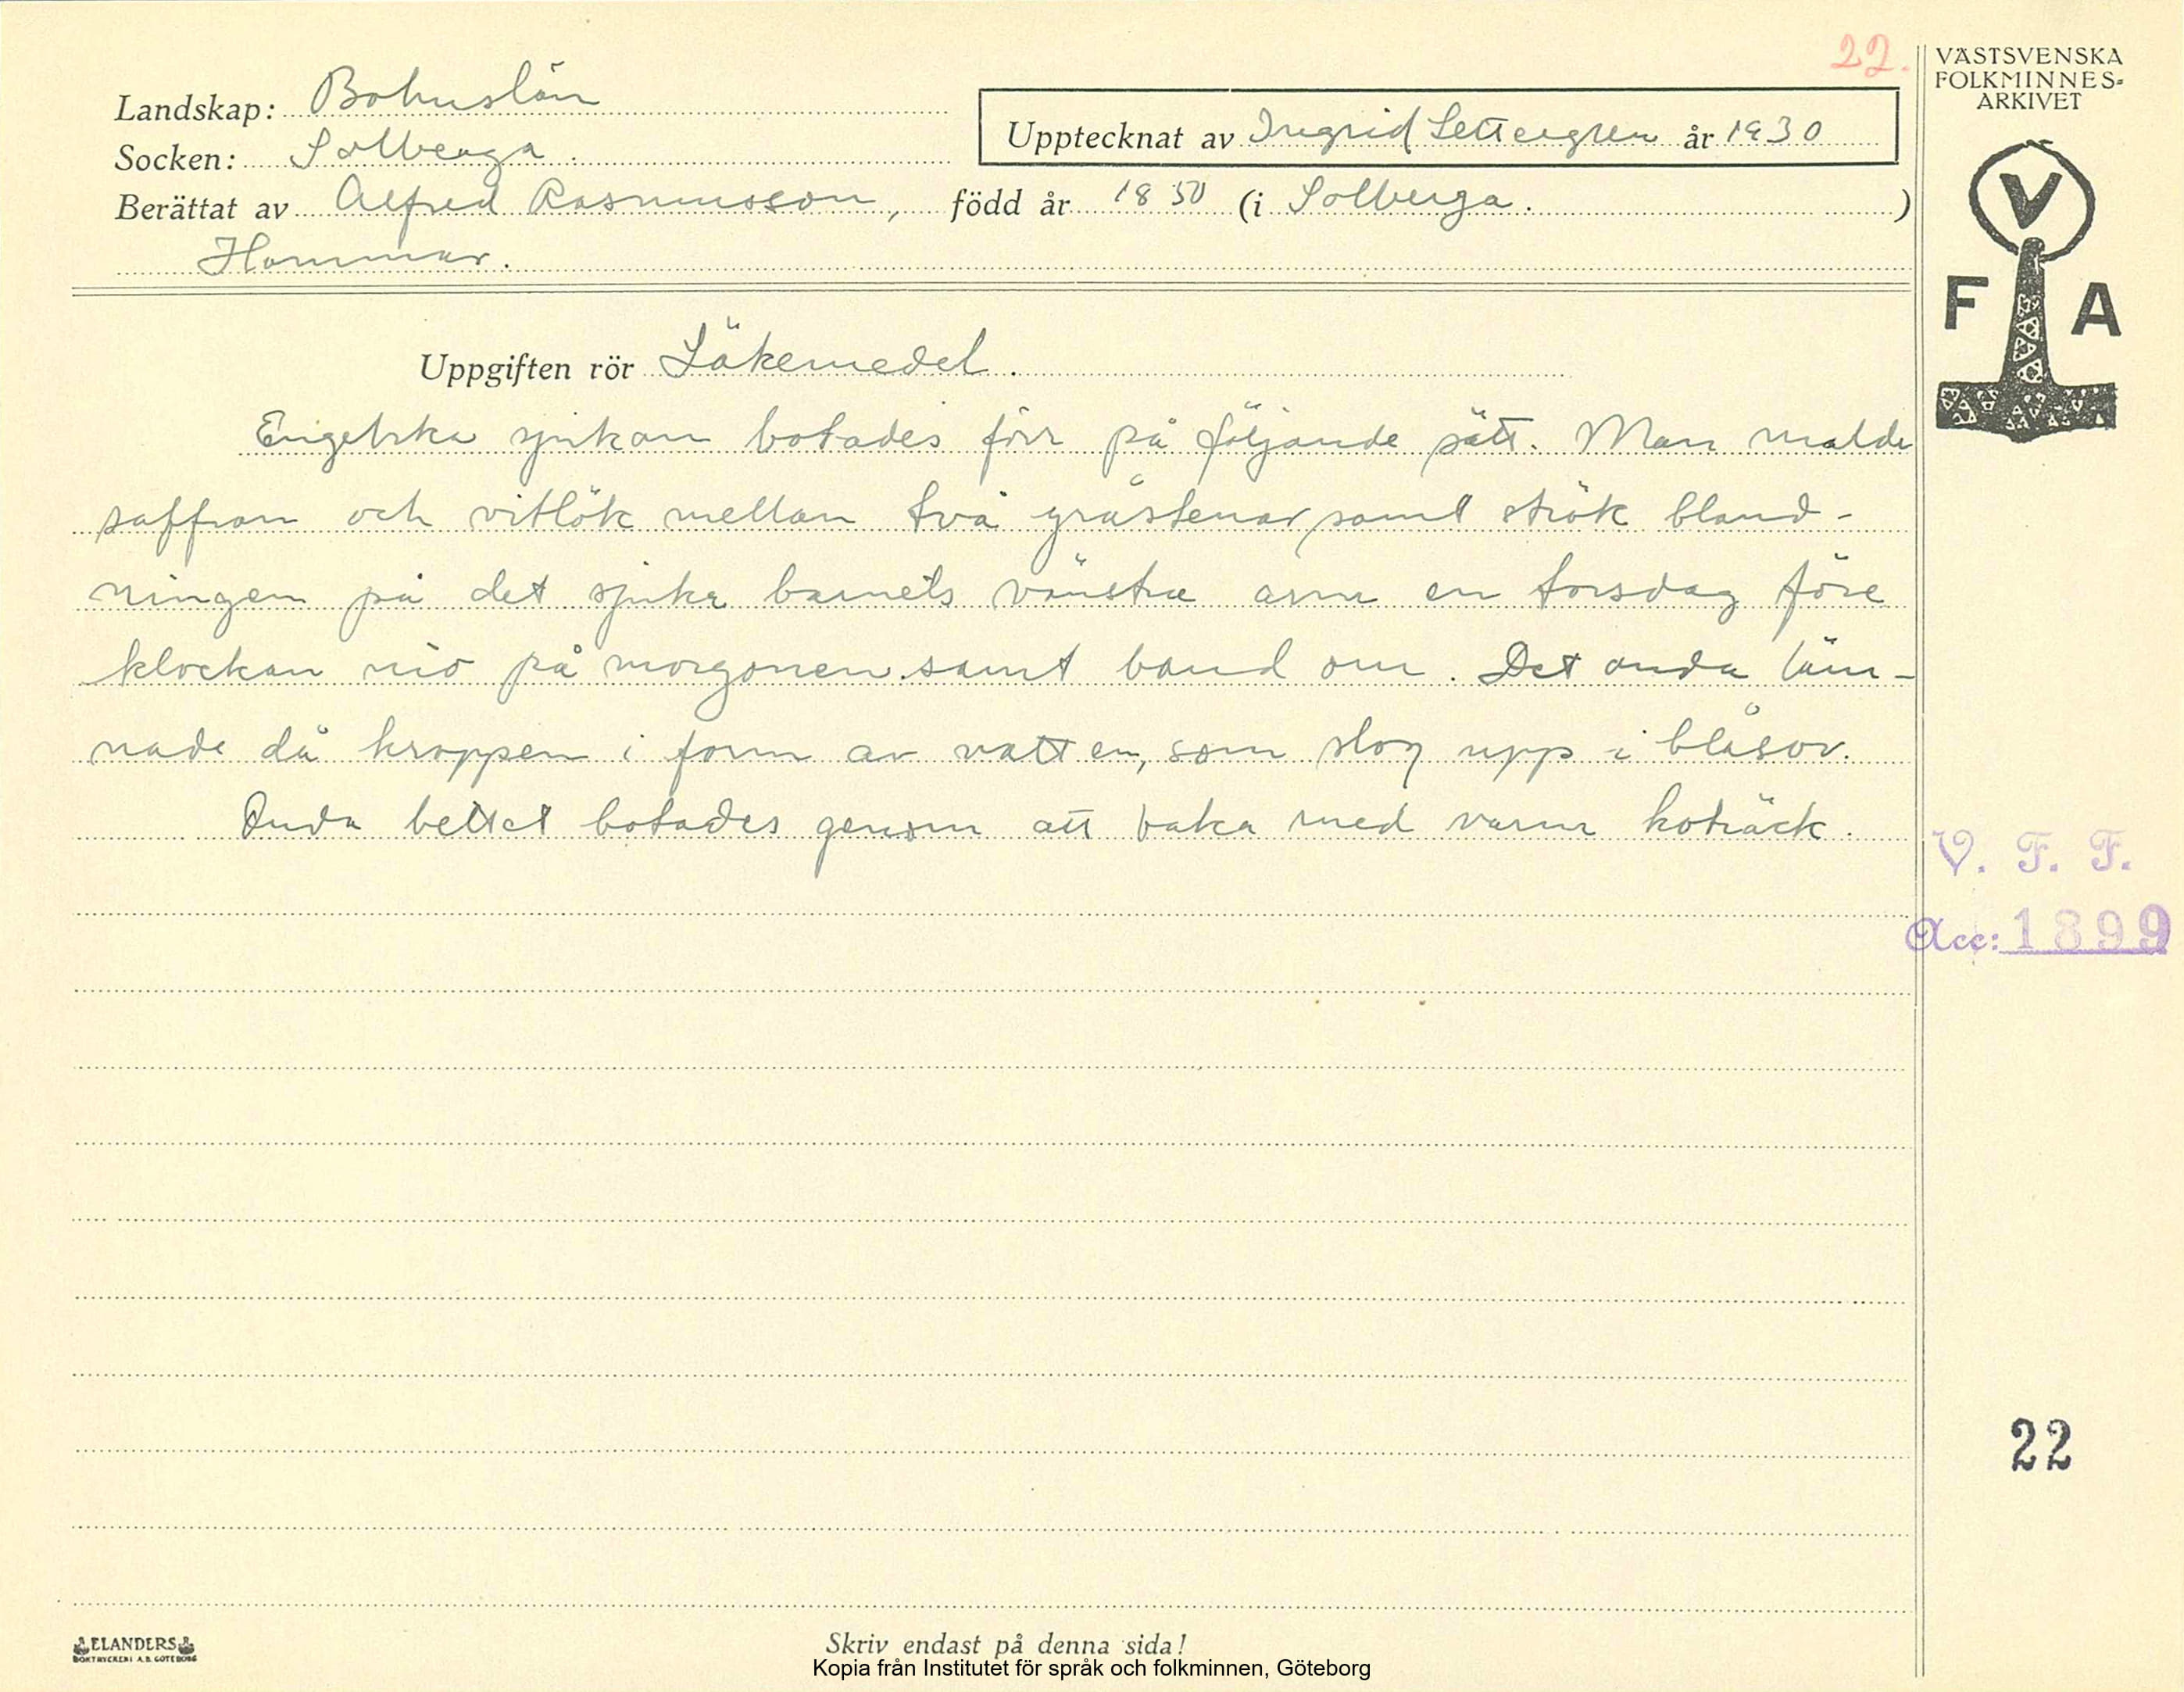 22.
VÄSTSVENSKA
FOLKMINNES-
ARKIVET
Landskap: Bohuslän
Upptecknat av Ingrid Settergren år 1930
Socken: Solberga
Berättat av Alfred Rasmusson, född år 1850 (i Solberga. )
Hammar.
V
F A
Uppgiften rör Läkemedel.
Engelska sjukan botades förr på följande sätt. Man malde
saffran och vitlök mellan två gråstenar samt strök bland-
ningen på det sjuka barnets vänstra arm en torsdag före
klockan nio på morgonen samt band om. Det onda läm-
nade då kroppen i form av vatten, som slog upp i blåsor.
Onda bettet botades genom att baka med varm koträck.
V. F. F.
Acc: 1899
22
ELANDERS
BOKTRYCKERI A.B. GÖTEBORG
Skriv endast på denna sida!
Kopia från Institutet för språk och folkminnen, Göteborg